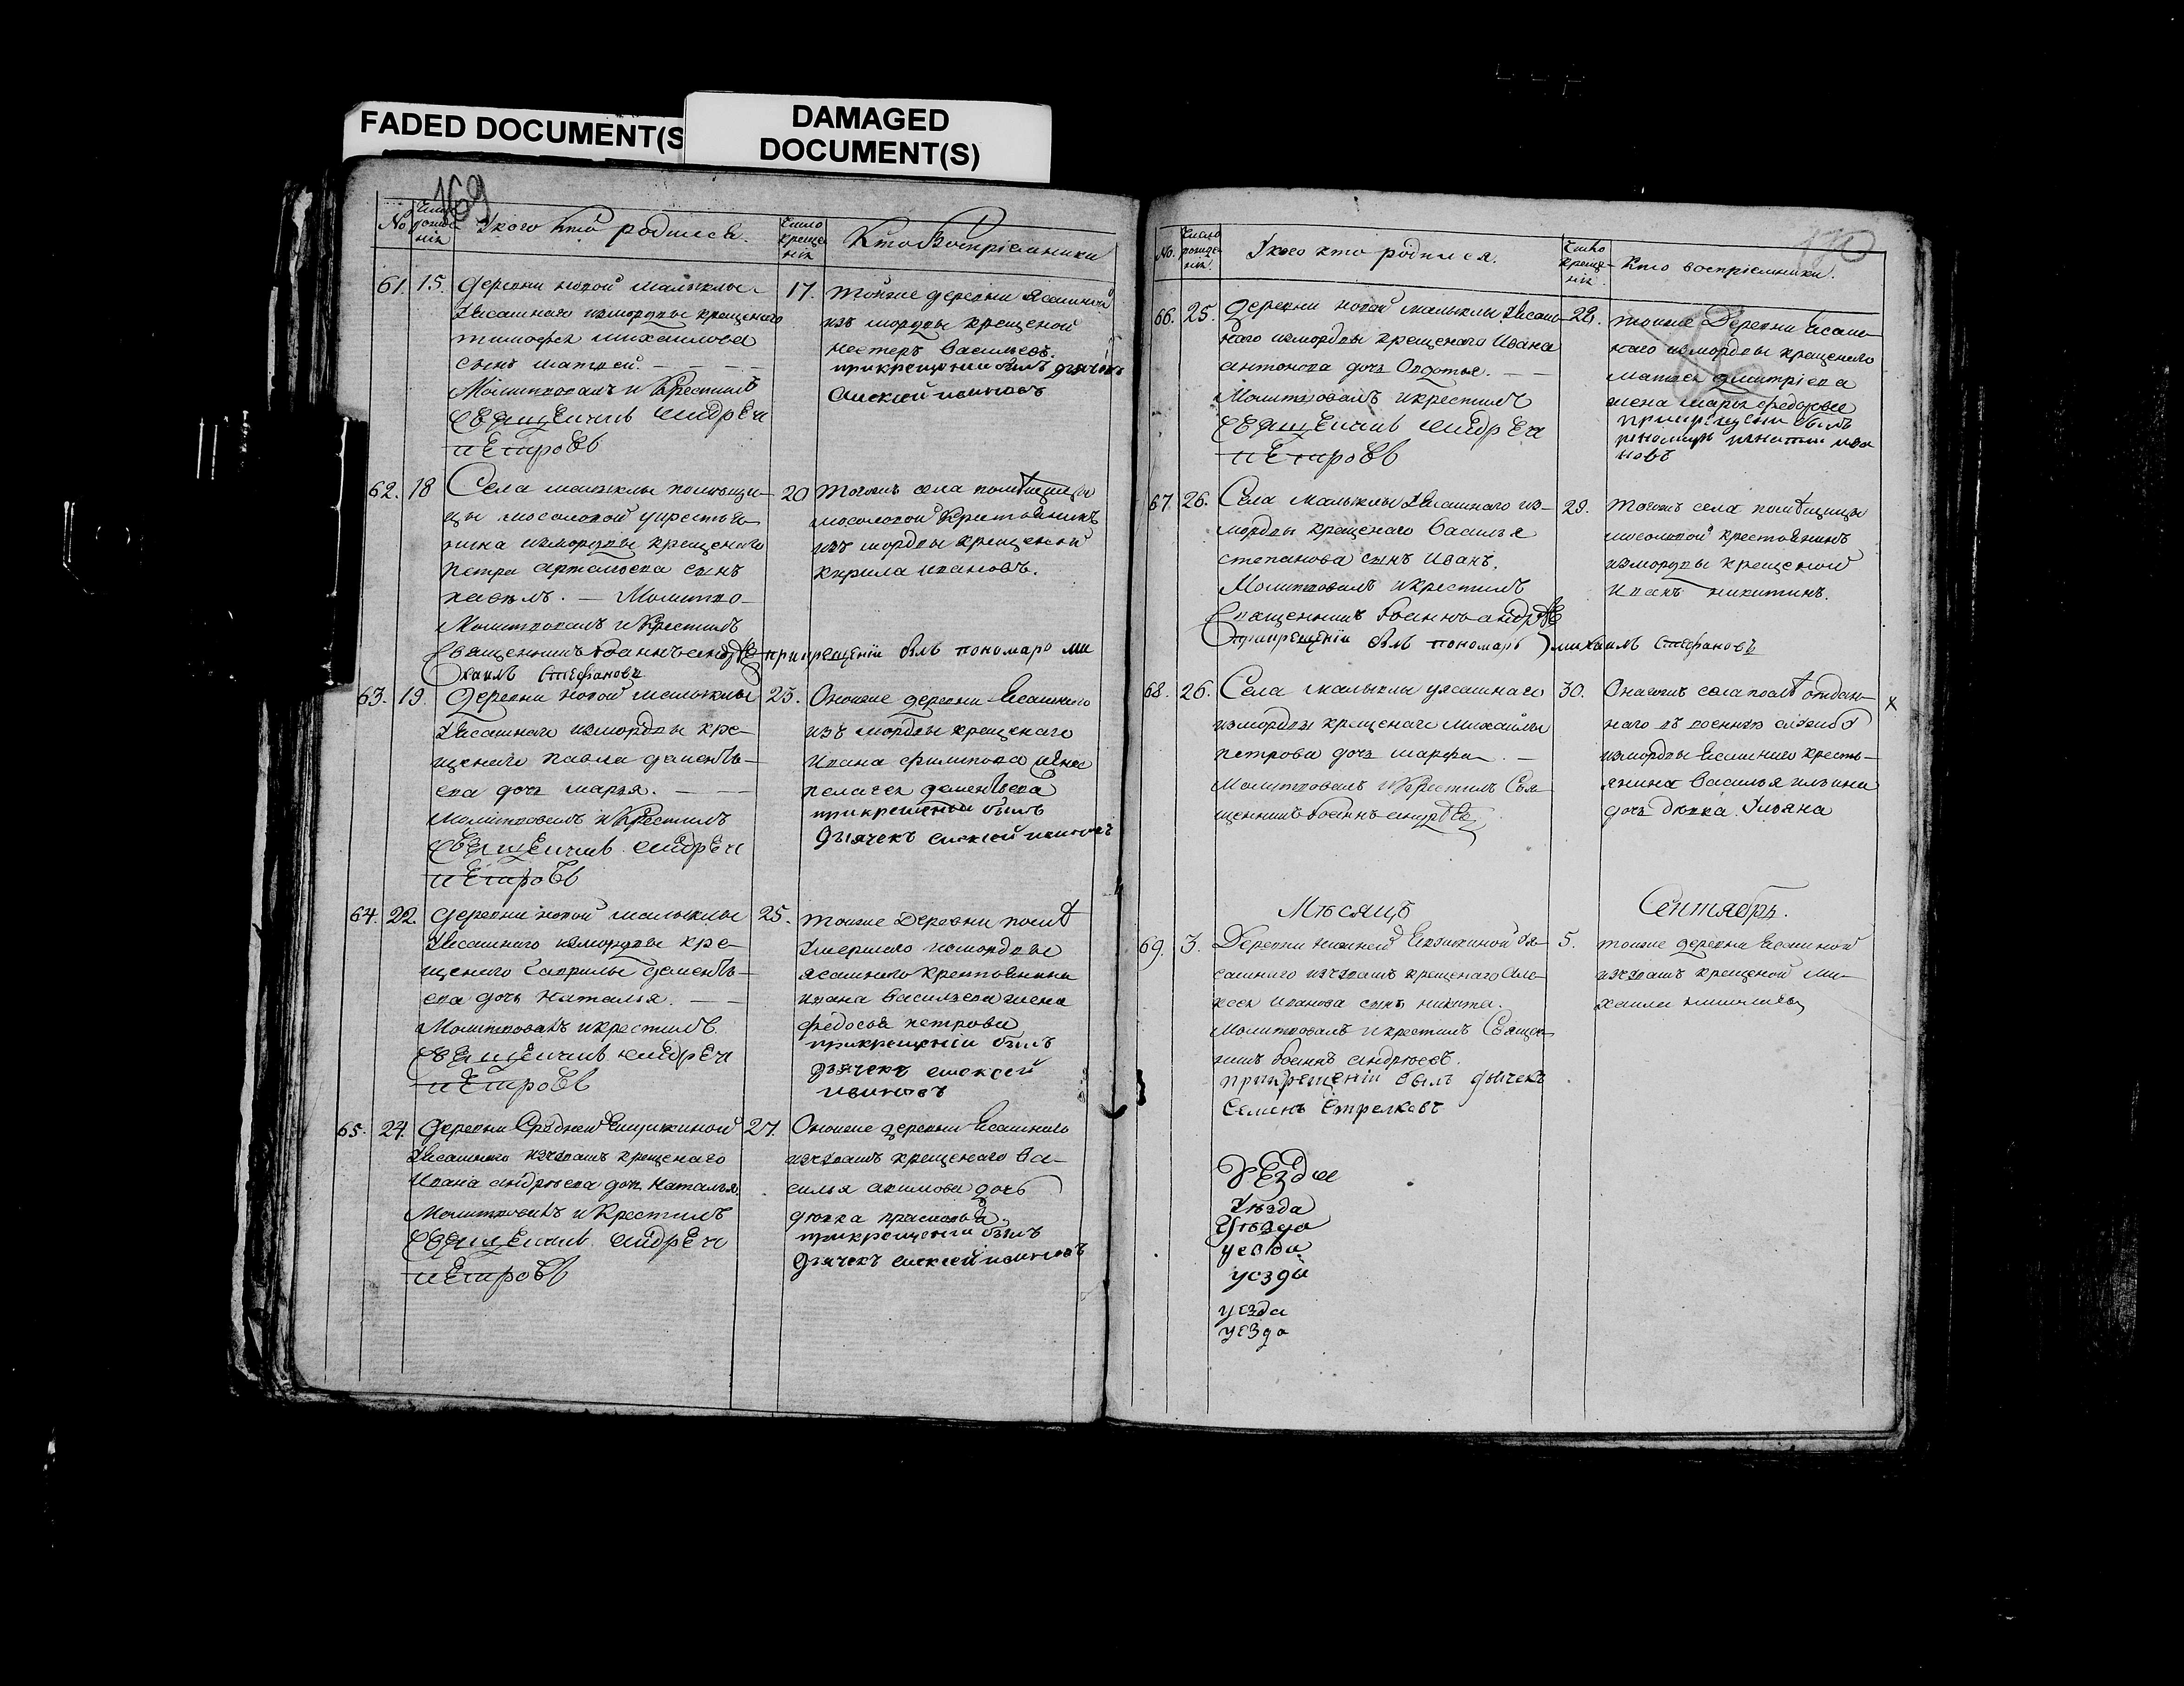 FADED DOCUMENT(S
DAMAGED
DOCUMENT(S)
169
No
Число рождения
У кого кто родился.
Число крещения
Кто Воспріемники
61. 15. деревни новой малыклы
Уясашнаго измордвы крещенаго
тимофея михаилова
сынъ матвей. — — —
Молитвовалъ и Крестилъ
Священникъ андрей
Петровъ
17. тойже деревни ясашной
изъ мордвы крещеной
нестеръ васильевъ.
прикрещении былъ дьячекъ
алексей ивановъ
62. 18 Села малыклы помещи-
цы мосоловой укрестья-
нина измордвы крещенаго
петра артамоева сынъ
павелъ. — Молитво-
Молитвовалъ и Крестилъ
священникъ Іоаннъ андреев прикрещеніи былъ пономарь ми
хаилъ Стефановъ
20 тогожъ села помѣщицы
мосоловой Крестьянинъ
изъ мордвы крещеной
кирила ивановъ.
63. 19. деревни новой малыклы
Уясашнаго измордвы кре-
щенаго павла дементь-
ева дочь марья. — —
Молитвовалъ и Крестилъ
Священникъ андрей
Петровъ
23. Оноиже деревни Ясашнаго
изъ мордвы крещенаго
ивана филипова жена
пелагея дементьева
прикрещеніи былъ
дьячекъ алексей ивановъ
64. 22. деревни новой малыклы
Уясашнаго измордвы кре-
щенаго гаврилы дементь-
ева дочь наталья. — —
Молитвовалъ икрестилъ
Священникъ андрей
Петровъ
25. тоиже деревни послѣ
Умершаго измордвы
ясашнаго крестьянина
ивана васильева жена
федосья петрова
прикрещеніи былъ
дьячекъ алексей
ивановъ
65. 24. деревни Средней
Уясашнаго изчювашъ крещенаго
ивана андреева дочь наталья
Молитвовалъ и Крестилъ
Священникъ андрей
Петровъ
27. Оноиже деревни Ясашнаго
изчювашъ крещенаго ва-
силья акимова дочь
девка
прикрещеніи былъ
дьячекъ алексей ивановъ
170
No.
Число рожденія.
У кого кто родился.
Число крещенія.
Кто воспріемники.
66. 25. деревни новой малыклы Уясаш-
наго измордвы крещенаго ивана
антонова дочь Овдотья. —
Молитвовалъ икрестилъ
Священникъ андрей
Петровъ
28. тоиже Деревни Ясаш-
наго измордвы крещенаго
матвея дмитріева
жена марья федорова
прикрещеніи былъ
пономарь игнатий ива
новъ
67. 26. Села малыклы Уясашнаго из-
мордвы крещенаго василья
степанова сынъ иванъ.
Молитвовалъ икрестилъ
Священникъ Іоаннъ андреев
прикрещеніи былъ пономарь михаилъ Стефановъ
29. тогожъ села помѣщицы
мосоловой крестьянинъ
измордвы крещеной
иванъ никитинъ.
68. 26. Села малыклы уясашнаго
измордвы крещенаго михаилы
петрова дочь марфа. —
Молитвовалъ и Крестилъ Свя-
щенникъ Іоаннъ андреев
30. Онагожъ села послѣ отдан-
наго въ военную службу
измордвы Ясашнаго кресть-
янина василья ильина
дочь девка Ульяна
х
Мѣсяцъ
Сентябрь.
69. 3. Деревни нижней Уя-
сашнаго изчювашъ крещенаго але-
ксея иванова сынъ никита.
Молитвовалъ икрестилъ Священ-
никъ Іоаннъ андреевъ.
прикрещеніи былъ дьячекъ
Семенъ Стрелковъ
5. тоиже деревни Ясашной
изчювашъ крещеной ми-
хаила
Уезда
Уѣзда
Уѣзда
уезда
уезда
уезда
уезда